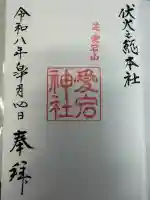 伏火之総本社
愛宕山
愛宕
神社
奉拝
令和八年 月 日